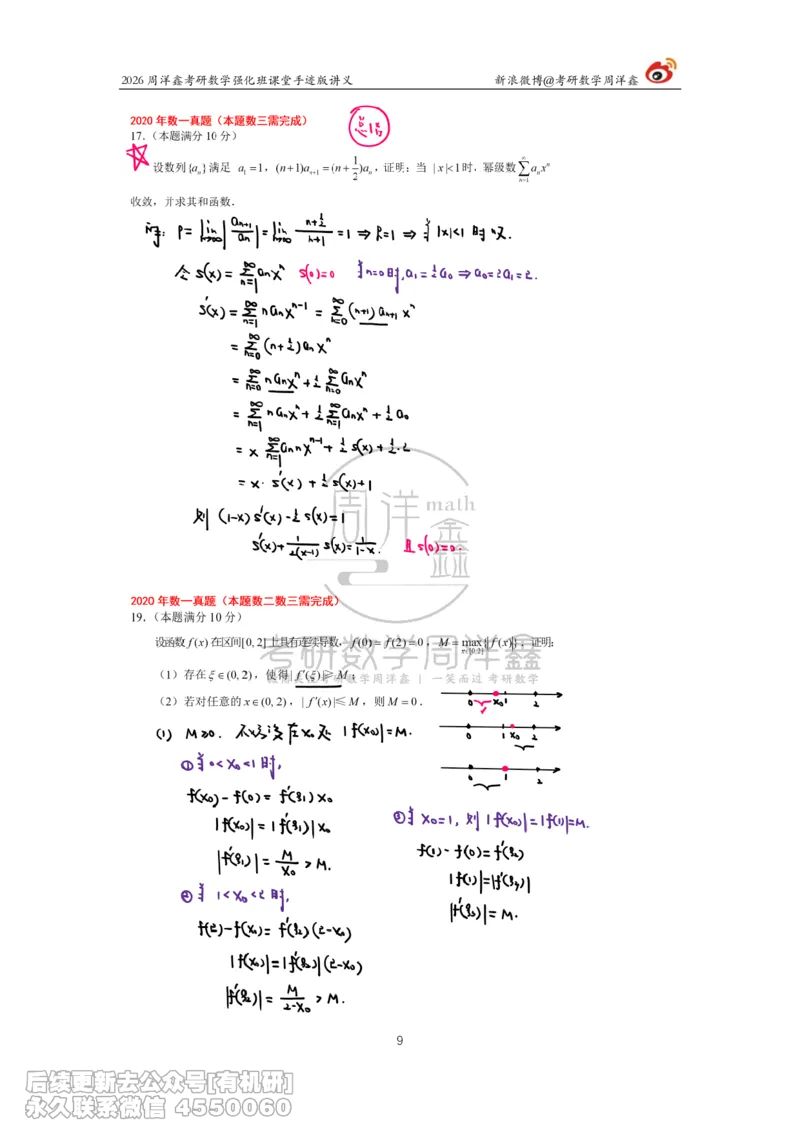 2026周洋鑫考研数学强化班课堂手迹版讲义
新浪微博@考研数学周洋鑫
2020年数一真题（本题数三需完成）
17.（本题满分10分）
设数列{aₙ}满足 a₁=1，(n+1)aₙ₊₁=(n+1/2)aₙ，证明：当 |x|<1时，幂级数∑_{n=1}^{∞} aₙxⁿ
收敛，并求其和函数．
证: ρ=lim_{n→∞}|aₙ₊₁/aₙ|=lim_{n→∞} (n+1/2)/(n+1)=1 ⇒ R=1 ⇒ 当|x|<1时收.
令S(x)=∑_{n=1}^{∞} aₙxⁿ S(0)=0 当n=0时,a₁=1/2 a₀ ⇒ a₀=2a₁=2.
S'(x)=∑_{n=1}^{∞} naₙxⁿ⁻¹ = ∑_{n=0}^{∞} (n+1)aₙ₊₁xⁿ
=∑_{n=0}^{∞} (n+1/2)aₙxⁿ
=∑_{n=0}^{∞} naₙxⁿ+1/2∑_{n=0}^{∞} aₙxⁿ
=∑_{n=1}^{∞} naₙxⁿ+1/2∑_{n=1}^{∞} aₙxⁿ+1/2 a₀
=x∑_{n=1}^{∞} aₙnxⁿ⁻¹+1/2 S(x)+1/2·2
=x·S'(x)+1/2 S(x)+1
则 (1-x)S'(x)-1/2 S(x)=1
S'(x)+1/(2(x-1)) S(x)=1/(1-x). 且S(0)=0.
周洋鑫 math
2020年数一真题（本题数二数三需完成）
19.（本题满分10分）
设函数f(x)在区间[0,2]上具有连续导数，f(0)=f(2)=0，M=max_{x∈[0,2]}{|f(x)|}，证明：
考研数学周洋鑫
（1）存在ξ∈(0,2)，使得|f'(ξ)|≥M；
一笑而过 考研数学
（2）若对任意的x∈(0,2)，|f'(x)|≤M，则M=0．
0 x₀ 1 2
(1) M≥0. 不妨设在x₀处 |f(x₀)|=M.
0 1 x₀ 2
0 1 2
①当0<x₀<1时,
f(x₀)-f(0)=f'(ξ₁)x₀
|f(x₀)|=|f'(ξ₁)|x₀
|f'(ξ₁)|=M/x₀>M.
②当 1<x₀<2时,
f(2)-f(x₀)=f'(ξ₂)(2-x₀)
|f(x₀)|=|f'(ξ₂)|(2-x₀)
|f'(ξ₂)|=M/(2-x₀)>M.
③当 x₀=1, 则|f(x₀)|=|f(1)|=M.
f(1)-f(0)=f'(ξ₃)
|f(1)|=|f'(ξ₃)|
|f'(ξ₃)|=M.
9
后续更新去公众号[有机研]
永久联系微信 4550060